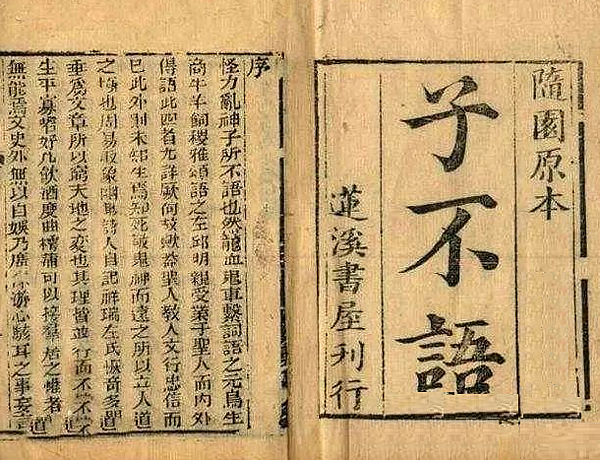 隨園原本
子不語
蓮溪書屋刊行
序
怪力亂神子所不語也然龍血鬼車繫詞語之元鳥生
商牛羊飼稷雅頌語之左邱明親受業于聖人而内外
傳語此四者尤詳厥何故歟蓋聖人教人文行忠信而
已此外則未知生焉知死敬鬼神而遠之所以立人道
之極也周易取象幽詩人自記祥瑞左氏恢奇多聞
垂為文章所以窮天地之變也其理皆並行而不悖
生平寡嗜好凡飲酒度曲樗蒲可以接羣居之歡者
無能焉文史外無以自娛乃廣采游心駭耳之事妄言